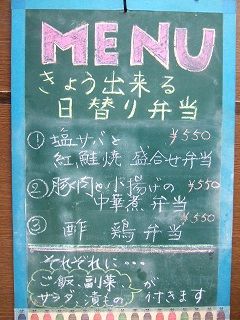 MENU
きょう出来る
日替り弁当
① 塩サバと ¥550
紅鮭焼 盛合せ弁当
② 豚肉と小揚げの ¥550
中華煮 弁当
③ 酢鶏弁当 ¥550
それぞれに…
ご飯、副菜、
サラダ、漬もの が付きます